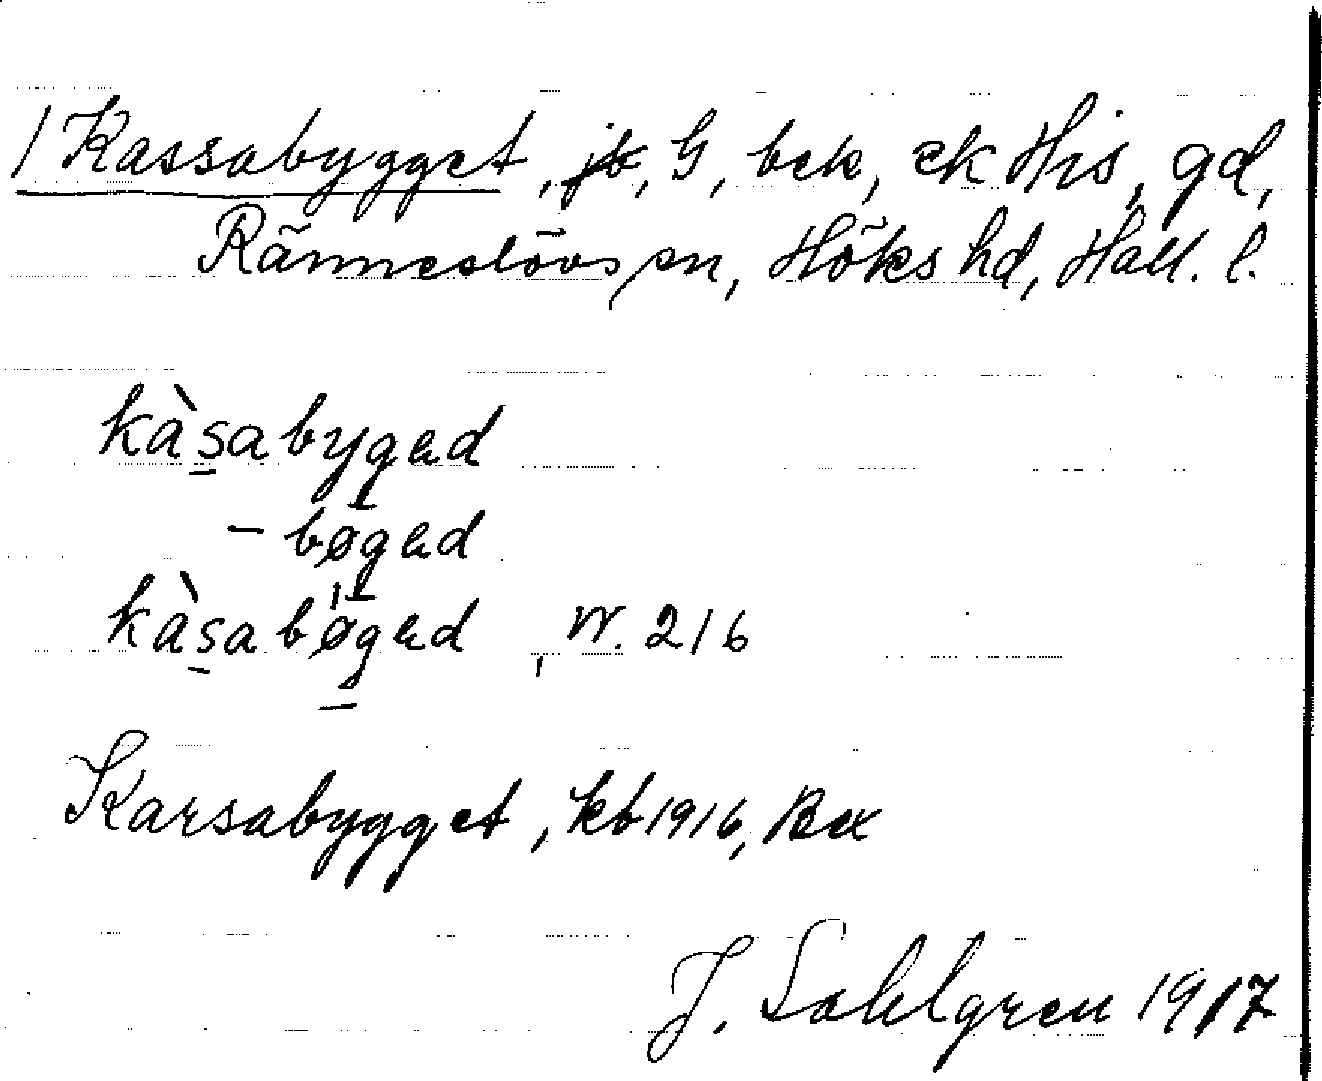 / Kassabygget, jb, G, bek, ek His, gd,
Ränneslövs sn, Höks hd, Hall. l.
kàsabygəd
- bøgəd
kàsabøgəd, W. 216
Karsabygget, kb 1916, Bex
J. Sahlgren 1917